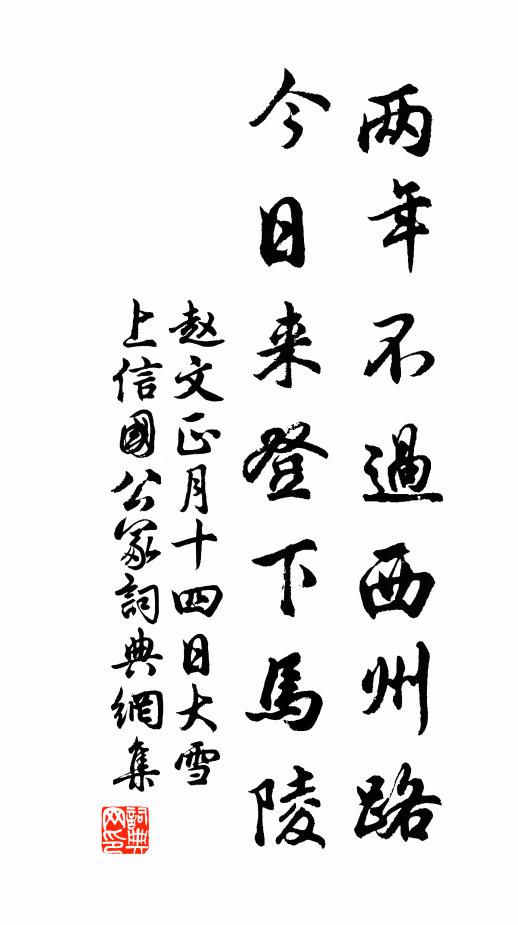 两年不過西州路
今日来登下馬陵
赵文正月十四日大雪
上信國公冢詞典網集
詞典网印